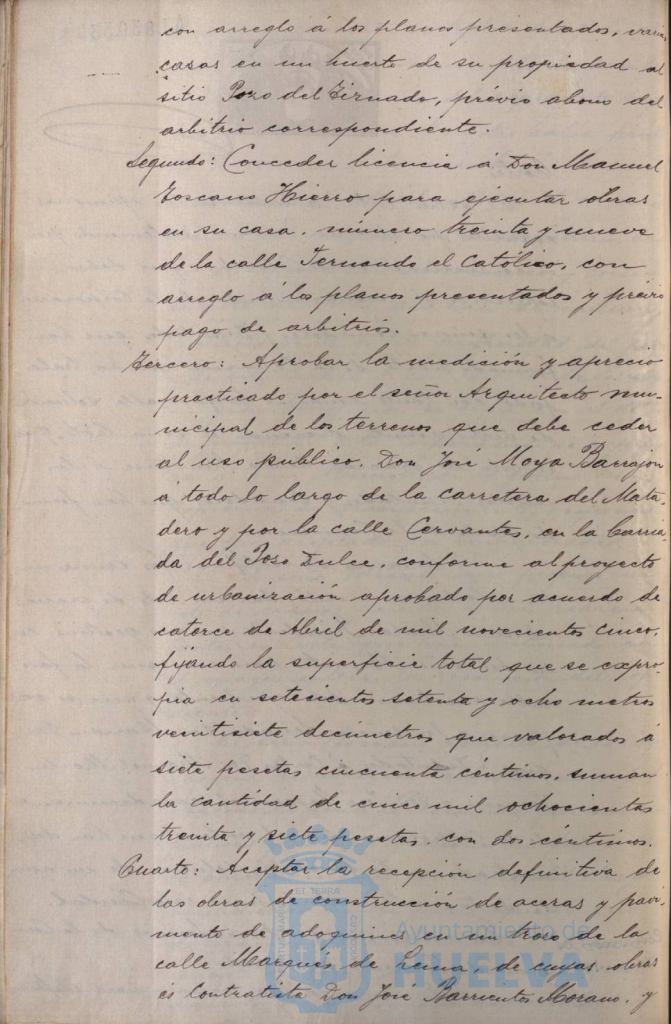 con arreglo á los planos presentados, varias
casas en un huerto de su propiedad al
sitio Pozo del Tirnado, prévio abono del
arbitrio correspondiente.
Segundo: Conceder licencia á Don Manuel
Toscano Hierro para ejecutar obras
en su casa, número treinta y nueve
de la calle Fernando el Católico, con
arreglo á los planos presentados y prévio
pago de arbitrios.
Tercero: Aprobar la medición y aprecio
practicado por el señor Arquitecto mu-
nicipal de los terrenos que debe ceder
al uso público, Don José Moya Barrajon
á todo lo largo de la carretera del Mata-
dero y por la calle Cervantes, en la Barria-
da del Poso Dulce, conforme al proyecto
de urbanización aprobado por acuerdo de
catorce de Abril de mil novecientos cinco,
fijando la superficie total que se expro-
pia en setecientos setenta y ocho metros
veintisiete decímetros que valorados á
siete pesetas cincuenta céntimos, suman
la cantidad de cinco mil ochocientas
treinta y siete pesetas con dos céntimos.
Cuarto: Aceptar la recepción definitiva de
las obras de construcción de aceras y pavi-
mento de adoquines en un trozo de la
calle Marqués de Lema, de cuyas obras
es Contratista Don José Barrientos Morano, y
Ayuntamiento de
HUELVA